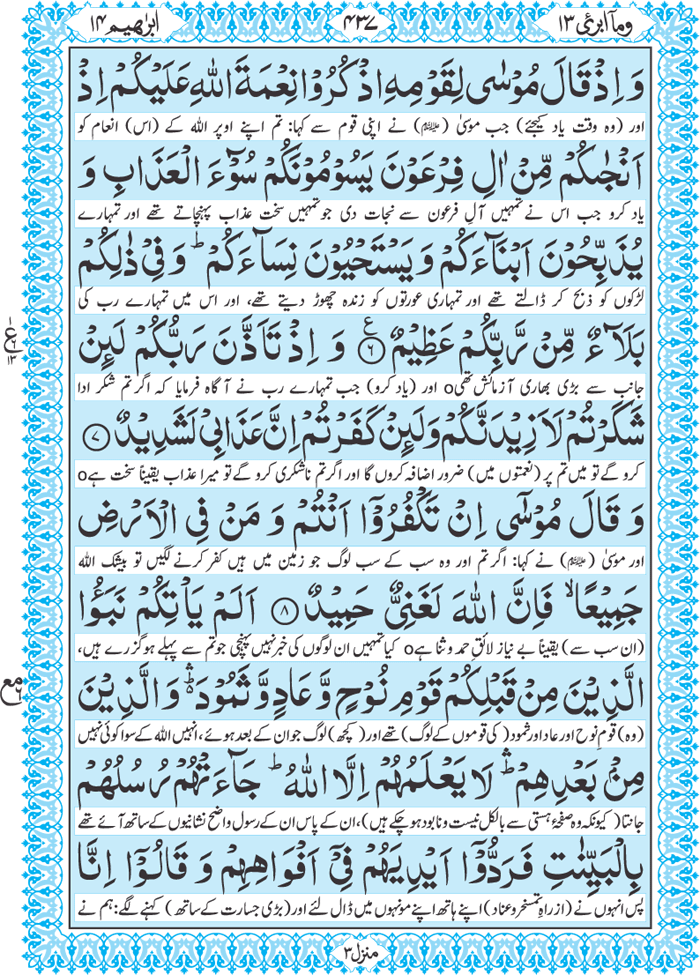 ومآ ابرئ ۱۳
۴۳۷
ابرٰھیم ۱۴
وَ اِذْ قَالَ مُوْسٰی لِقَوْمِهِ اذْكُرُوْا نِعْمَةَ اللّٰهِ عَلَیْكُمْ اِذْ
اور (وہ وقت یاد کیجئے) جب موسٰی (علیہ السلام) نے اپنی قوم سے کہا: تم اپنے اوپر اللہ کے (اس) انعام کو
اَنْجٰىكُمْ مِّنْ اٰلِ فِرْعَوْنَ یَسُوْمُوْنَكُمْ سُوْٓءَ الْعَذَابِ وَ
یاد کرو جب اس نے تمہیں آلِ فرعون سے نجات دی جو تمہیں سخت عذاب پہنچاتے تھے اور تمہارے
یُذَبِّحُوْنَ اَبْنَآءَكُمْ وَ یَسْتَحْیُوْنَ نِسَآءَكُمْ ؕ وَ فِیْ ذٰلِكُمْ
لڑکوں کو ذبح کر ڈالتے تھے اور تمہاری عورتوں کو زندہ چھوڑ دیتے تھے، اور اس میں تمہارے رب کی
بَلَآءٌ مِّنْ رَّبِّكُمْ عَظِیْمٌ ۶ ع وَ اِذْ تَاَذَّنَ رَبُّكُمْ لَىِٕنْ
ع ۱۳
جانب سے بڑی بھاری آزمائش تھیo اور (یاد کرو) جب تمہارے رب نے آگاہ فرمایا کہ اگر تم شکر ادا
شَكَرْتُمْ لَاَزِیْدَنَّكُمْ وَ لَىِٕنْ كَفَرْتُمْ اِنَّ عَذَابِیْ لَشَدِیْدٌ ۷
کرو گے تو میں تم پر (نعمتوں میں) ضرور اضافہ کروں گا اور اگر تم ناشکری کرو گے تو میرا عذاب یقیناً سخت ہےo
وَ قَالَ مُوْسٰۤی اِنْ تَكْفُرُوْۤا اَنْتُمْ وَ مَنْ فِی الْاَرْضِ
اور موسٰی (علیہ السلام) نے کہا: اگر تم اور وہ سب کے سب لوگ جو زمین میں ہیں کفر کرنے لگیں تو بیشک اللہ
جَمِیْعًا ۙ فَاِنَّ اللّٰهَ لَغَنِیٌّ حَمِیْدٌ ۸ اَلَمْ یَاْتِكُمْ نَبَؤُا
(ان سب سے) یقیناً بے نیاز لائقِ حمد و ثنا ہےo کیا تمہیں ان لوگوں کی خبر نہیں پہنچی جو تم سے پہلے ہو گزرے ہیں،
الَّذِیْنَ مِنْ قَبْلِكُمْ قَوْمِ نُوْحٍ وَّ عَادٍ وَّ ثَمُوْدَ ۛؕ وَ الَّذِیْنَ
مع
(وہ) قومِ نوح اور عاد اور ثمود (کی قوموں کے لوگ) تھے اور (کچھ) لوگ جو ان کے بعد ہوئے، انہیں اللہ کے سوا کوئی نہیں
مِنْۢ بَعْدِهِمْ ۛؕ لَا یَعْلَمُهُمْ اِلَّا اللّٰهُ ؕ جَآءَتْهُمْ رُسُلُهُمْ
جانتا (کیونکہ وہ صفحۂ ہستی سے بالکل نیست و نابود ہو چکے ہیں)، ان کے پاس ان کے رسول واضح نشانیوں کے ساتھ آئے تھے
بِالْبَیِّنٰتِ فَرَدُّوْۤا اَیْدِیَهُمْ فِیْۤ اَفْوَاهِهِمْ وَ قَالُوْۤا اِنَّا
پس انہوں نے (از راہِ تمسخر و عناد) اپنے ہاتھ اپنے مونہوں میں ڈال لئے اور (بڑی جسارت کے ساتھ) کہنے لگے: ہم نے
منزل ۳